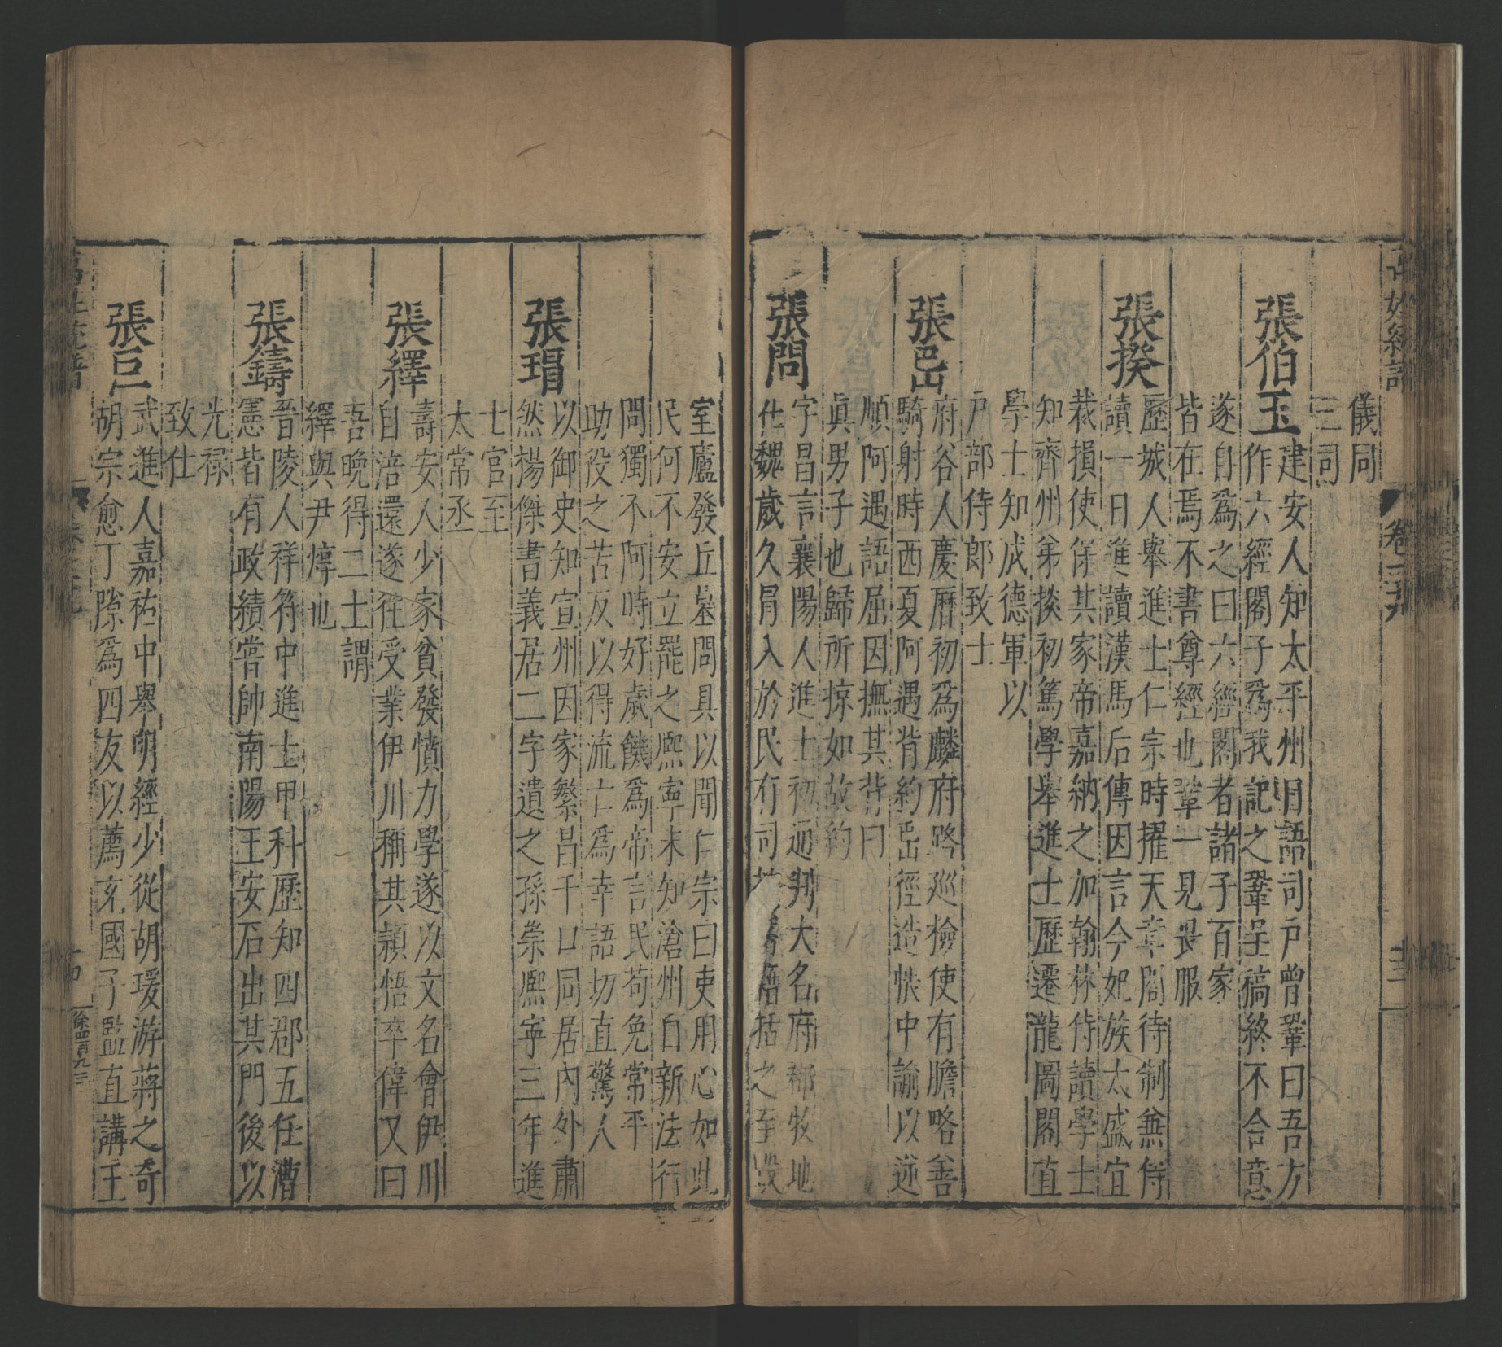 萬姓統譜
卷三九
十三
儀同
三司
張伯玉
建安人知太平州旧語司戶曾鞏曰吾方
作六經閣子爲我記之鞏呈稿終不合意
遂自爲之曰六經閣者諸子百家
皆在焉不書尊經也鞏一見畏服
張揆
歷城人舉進士仁宗時擢天章閣待制無侍
讀一日進讀漢馬后傳因言今妃族太盛宜
裁損使保其家帝嘉納之加翰林侍讀學士
知齊州弟掞初篤學舉進士歷遷龍圖閣直
學士知成德軍以
戶部侍郎致士
張岊
府谷人慶曆初爲麟府路巡檢使有膽略善
騎射時西夏阿遇背約岊徑造帳中諭以逆
順阿遇語屈因撫其背曰
眞男子也歸所掠如故約
張問
字昌言襄陽人進士初通判大名府郡牧地
在魏歲久冐入於民有司按舊籍括之至毀
室廬發丘墓問具以聞仁宗曰吏用心如此
民何不安立罷之熙寧末知滄州自新法行
問獨不阿時好歲饑爲帝言民苟免常平
助役之苦反以得流亡爲幸語切直驚人
張瑁
以御史知宣州因家繁昌千口同居內外肅
然楊傑書義居二字遺之孫崇熙寧三年進
士官至
太常丞
張繹
壽安人少家貧發憤力學遂以文名會伊川
自涪還遂徃受業伊川稱其頴悟卒偉又曰
吾晚得二士謂
繹與尹焞也
張鑄
晉陵人祥符中進士甲科歷知四郡五任漕
憲皆有政績嘗帥南陽王安石出其門後以
光祿
致仕
張巨
武進人嘉祐中舉明經少從胡瑗游蔣之奇
胡宗愈丁隲爲四友以薦充國子監直講王
徐四百九三